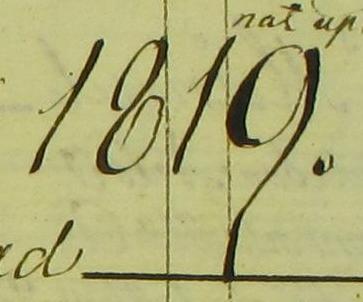 nat up
1819.